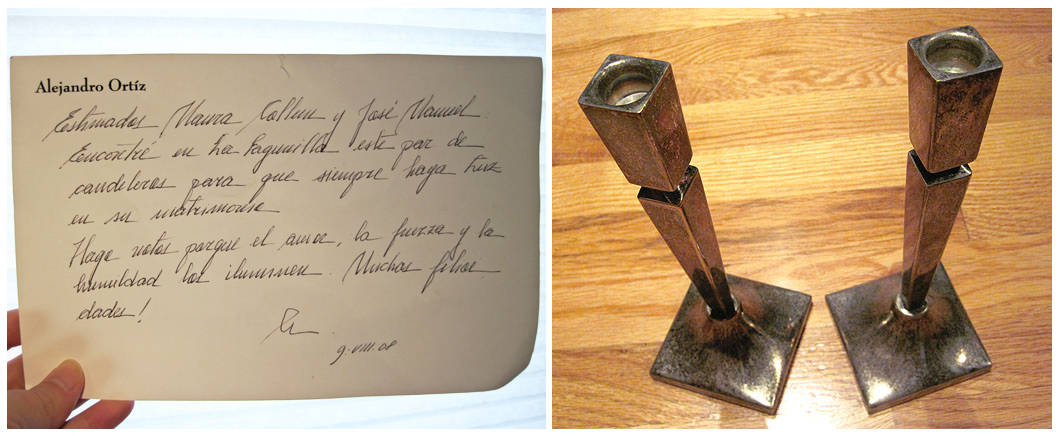 Alejandro Ortíz
Estimados Maura Collen y José Manuel.
Encontré en La Lagunilla este par de
candeleros para que siempre haga luz
en su matrimonio
Hago votos porque el amor, la fuerza y la
humildad los iluminen. Muchas felici
dades!
9·VIII·08